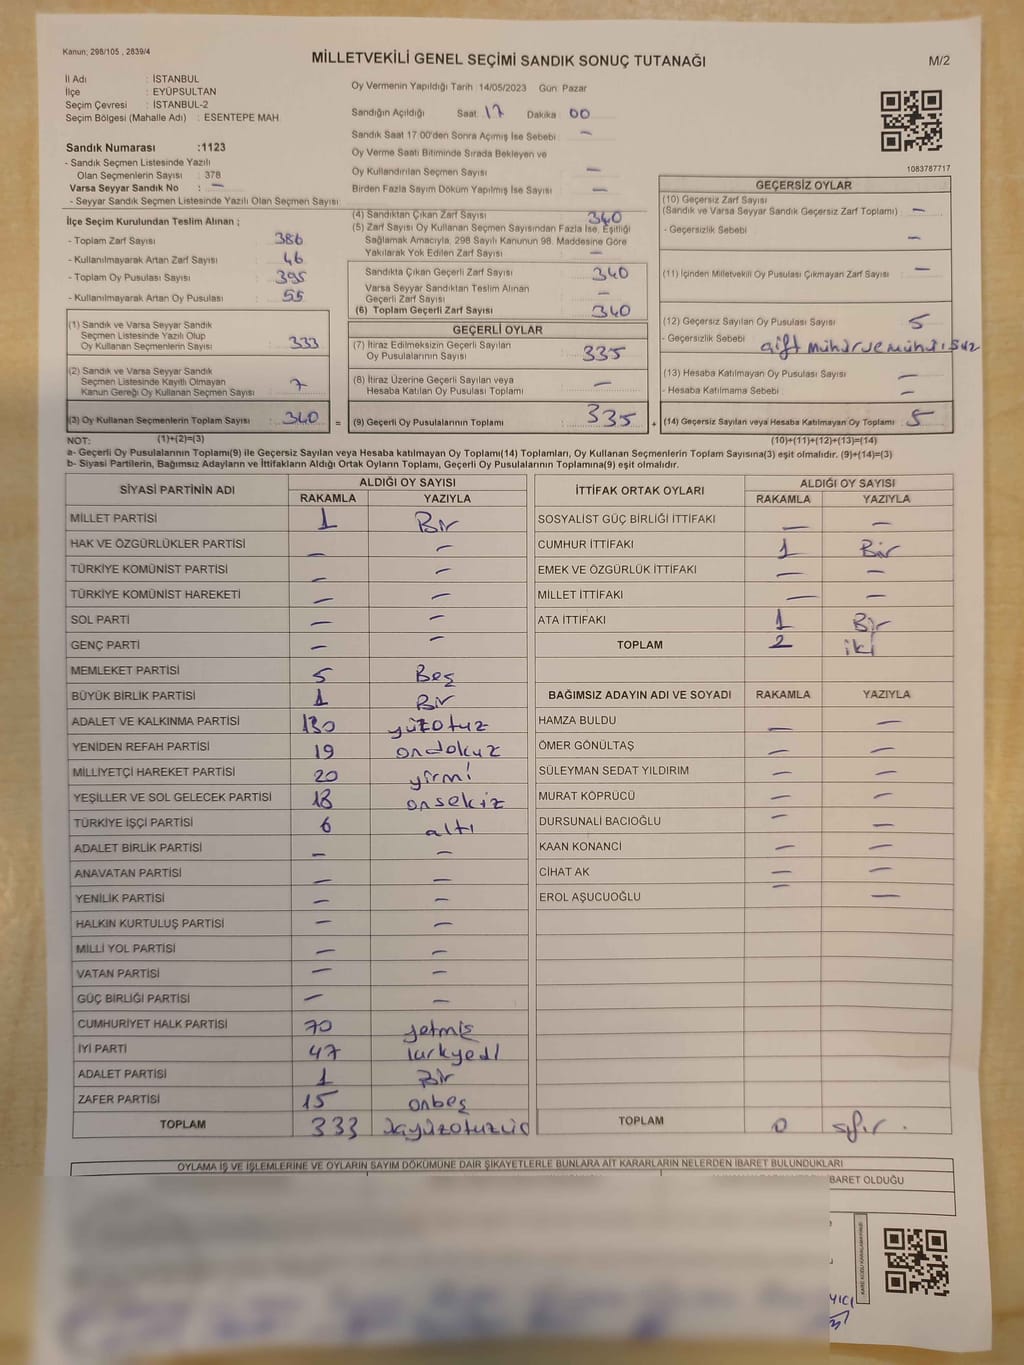 Kanun: 298/105 , 2839/4
MİLLETVEKİLİ GENEL SEÇİMİ SANDIK SONUÇ TUTANAĞI
M/2
İl Adı : İSTANBUL
İlçe : EYÜPSULTAN
Seçim Çevresi : İSTANBUL-2
Seçim Bölgesi (Mahalle Adı) : ESENTEPE MAH.
Sandık Numarası :1123
- Sandık Seçmen Listesinde Yazılı
Olan Seçmenlerin Sayısı : 378
Varsa Seyyar Sandık No : —
- Seyyar Sandık Seçmen Listesinde Yazılı Olan Seçmen Sayısı
Oy Vermenin Yapıldığı Tarih :14/05/2023 Gün: Pazar
Sandığın Açıldığı Saat: 17 Dakika 00
Sandık Saat 17:00'den Sonra Açılmış İse Sebebi —
Oy Verme Saati Bitiminde Sırada Bekleyen ve
Oy Kullandırılan Seçmen Sayısı —
Birden Fazla Sayım Döküm Yapılmış İse Sayısı —
1083787717
İlçe Seçim Kurulundan Teslim Alınan ;
- Toplam Zarf Sayısı : 386
- Kullanılmayarak Artan Zarf Sayısı : 46
- Toplam Oy Pusulası Sayısı : 395
- Kullanılmayarak Artan Oy Pusulası : 55
(1) Sandık ve Varsa Seyyar Sandık
Seçmen Listesinde Yazılı Olup
Oy Kullanan Seçmenlerin Sayısı : 333
(2) Sandık ve Varsa Seyyar Sandık
Seçmen Listesinde Kayıtlı Olmayan
Kanun Gereği Oy Kullanan Seçmen Sayısı 7
(3) Oy Kullanan Seçmenlerin Toplam Sayısı : 340
(4) Sandıktan Çıkan Zarf Sayısı 340
(5) Zarf Sayısı Oy Kullanan Seçmen Sayısından Fazla İse, Eşitliği
Sağlamak Amacıyla, 298 Sayılı Kanunun 98. Maddesine Göre
Yakılarak Yok Edilen Zarf Sayısı —
Sandıkta Çıkan Geçerli Zarf Sayısı 340
Varsa Seyyar Sandıktan Teslim Alınan
Geçerli Zarf Sayısı —
(6) Toplam Geçerli Zarf Sayısı 340
GEÇERLİ OYLAR
(7) İtiraz Edilmeksizin Geçerli Sayılan
Oy Pusulalarının Sayısı : 335
(8) İtiraz Üzerine Geçerli Sayılan veya
Hesaba Katılan Oy Pusulası Toplamı : —
= (9) Geçerli Oy Pusulalarının Toplamı : 335
GEÇERSİZ OYLAR
(10) Geçersiz Zarf Sayısı
(Sandık ve Varsa Seyyar Sandık Geçersiz Zarf Toplamı) : —
- Geçersizlik Sebebi —
(11) İçinden Milletvekili Oy Pusulası Çıkmayan Zarf Sayısı : —
(12) Geçersiz Sayılan Oy Pusulası Sayısı : 5
- Geçersizlik Sebebi : çift mühür ve mühürsüz
(13) Hesaba Katılmayan Oy Pusulası Sayısı : —
- Hesaba Katılmama Sebebi : —
+ (14) Geçersiz Sayılan veya Hesaba Katılmayan Oy Toplamı : 5
NOT: (1)+(2)=(3) (10)+(11)+(12)+(13)=(14)
a- Geçerli Oy Pusulalarının Toplamı(9) ile Geçersiz Sayılan veya Hesaba katılmayan Oy Toplamı(14) Toplamları, Oy Kullanan Seçmenlerin Toplam Sayısına(3) eşit olmalıdır. (9)+(14)=(3)
b- Siyasi Partilerin, Bağımsız Adayların ve İttifakların Aldığı Ortak Oyların Toplamı, Geçerli Oy Pusulalarının Toplamına(9) eşit olmalıdır.
SİYASİ PARTİNİN ADI ALDIĞI OY SAYISI
RAKAMLA YAZIYLA
MİLLET PARTİSİ 1 Bir
HAK VE ÖZGÜRLÜKLER PARTİSİ — —
TÜRKİYE KOMÜNİST PARTİSİ — —
TÜRKİYE KOMÜNİST HAREKETİ — —
SOL PARTİ — —
GENÇ PARTİ — —
MEMLEKET PARTİSİ 5 Beş
BÜYÜK BİRLİK PARTİSİ 1 Bir
ADALET VE KALKINMA PARTİSİ 130 yüzotuz
YENİDEN REFAH PARTİSİ 19 ondokuz
MİLLİYETÇİ HAREKET PARTİSİ 20 yirmi
YEŞİLLER VE SOL GELECEK PARTİSİ 18 onsekiz
TÜRKİYE İŞÇİ PARTİSİ 6 altı
ADALET BİRLİK PARTİSİ — —
ANAVATAN PARTİSİ — —
YENİLİK PARTİSİ — —
HALKIN KURTULUŞ PARTİSİ — —
MİLLİ YOL PARTİSİ — —
VATAN PARTİSİ — —
GÜÇ BİRLİĞİ PARTİSİ — —
CUMHURİYET HALK PARTİSİ 70 yetmiş
İYİ PARTİ 47 kırkyedi
ADALET PARTİSİ 1 Bir
ZAFER PARTİSİ 15 onbeş
TOPLAM 333
İTTİFAK ORTAK OYLARI ALDIĞI OY SAYISI
RAKAMLA YAZIYLA
SOSYALİST GÜÇ BİRLİĞİ İTTİFAKI — —
CUMHUR İTTİFAKI 1 Bir
EMEK VE ÖZGÜRLÜK İTTİFAKI — —
MİLLET İTTİFAKI — —
ATA İTTİFAKI 1 Bir
TOPLAM 2 iki
BAĞIMSIZ ADAYIN ADI VE SOYADI RAKAMLA YAZIYLA
HAMZA BULDU — —
ÖMER GÖNÜLTAŞ — —
SÜLEYMAN SEDAT YILDIRIM — —
MURAT KÖPRÜCÜ — —
DURSUNALİ BACIOĞLU — —
KAAN KONANCI — —
CİHAT AK — —
EROL AŞUCUOĞLU — —
TOPLAM 0 sıfır.
OYLAMA İŞ VE İŞLEMLERİNE VE OYLARIN SAYIM DÖKÜMÜNE DAİR ŞİKAYETLERLE BUNLARA AİT KARARLARIN NELERDEN İBARET BULUNDUKLARI
BARET OLDUĞU